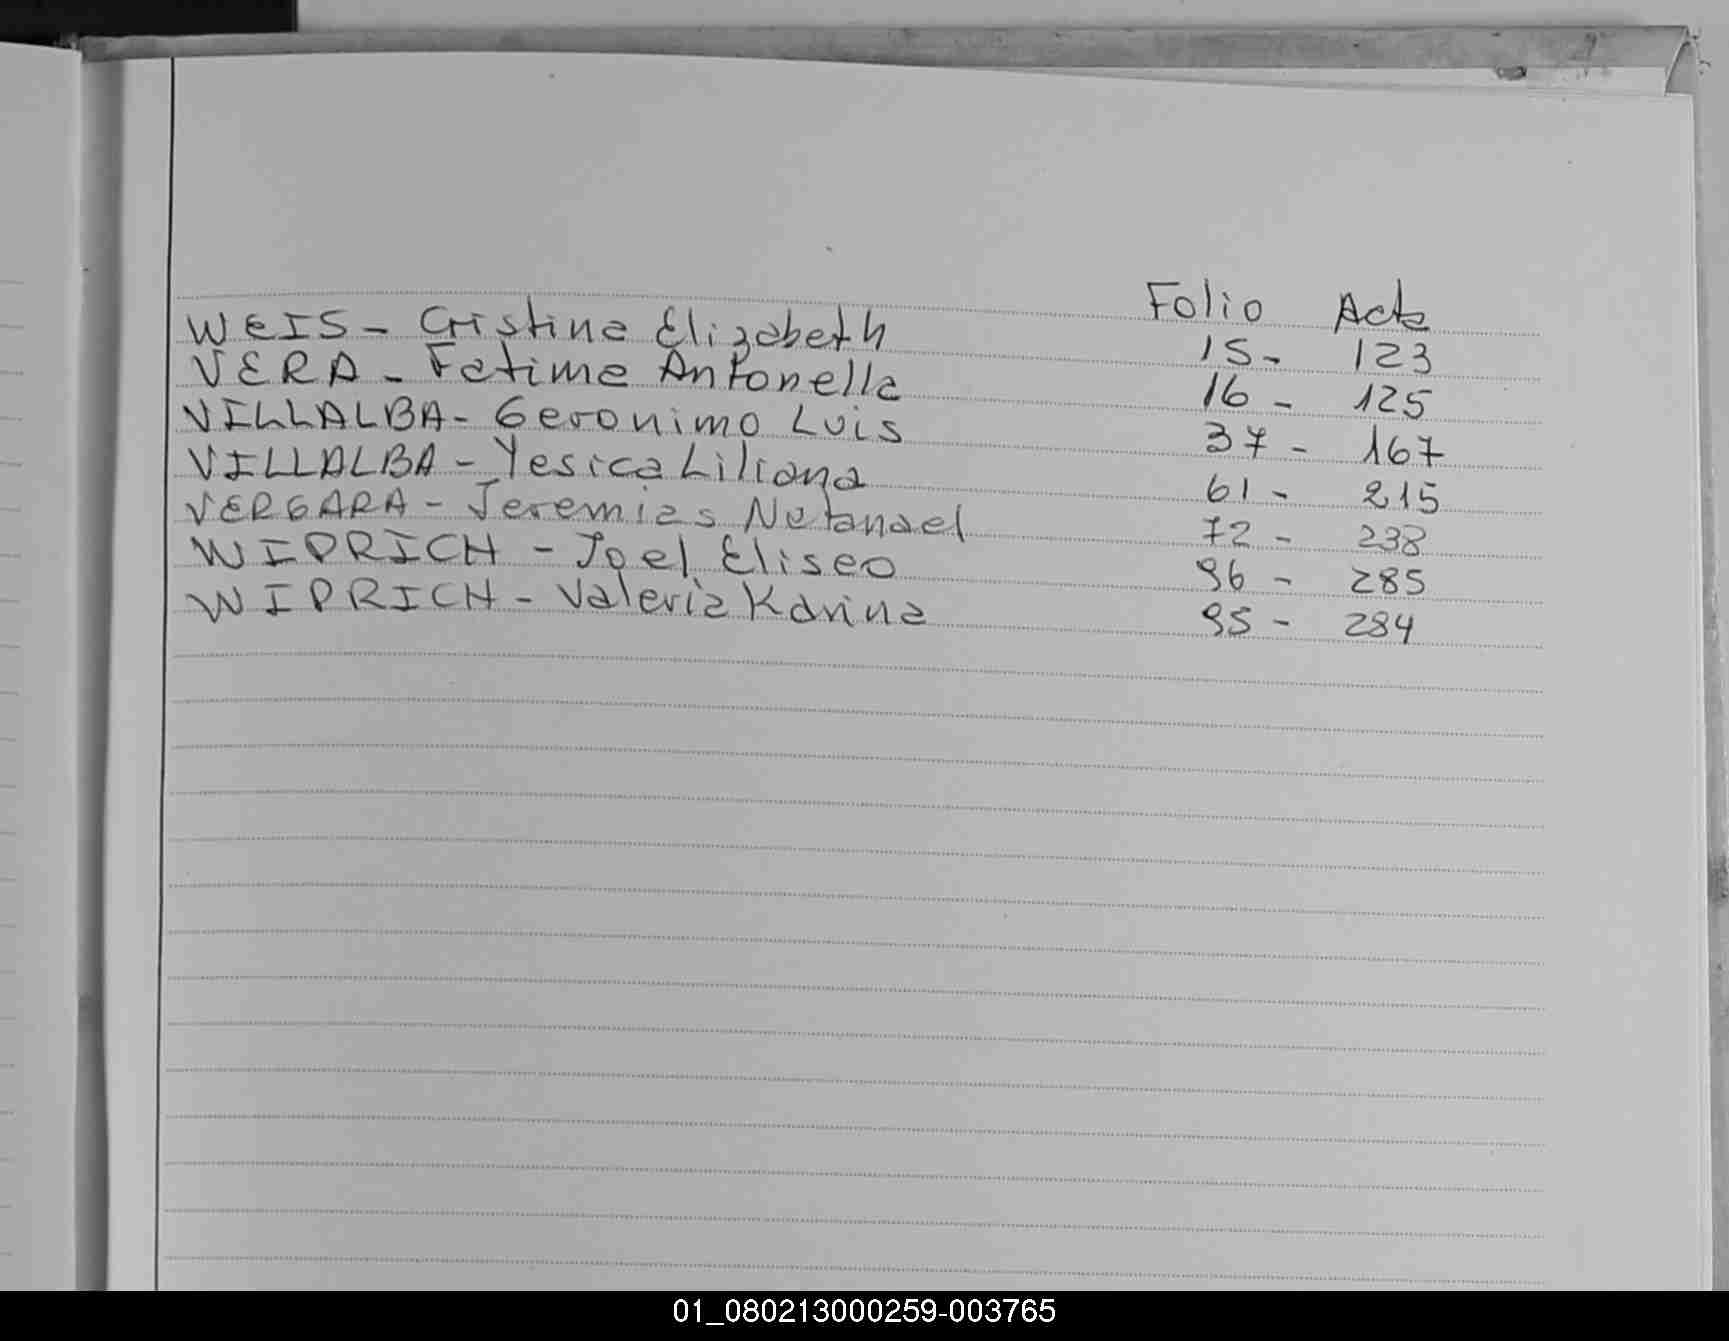 Folio Acta
WEIS - Cristina Elizabeth 15 - 123
VERA - Fatima Antonella 16 - 125
VILLALBA - Geronimo Luis 37 - 167
VILLALBA - Yesica Liliana 61 - 215
VERGARA - Jeremias Natanael 72 - 238
WIPRICH - Joel Eliseo 96 - 285
WIPRICH - Valeria Karina 95 - 284
01_080213000259-003765